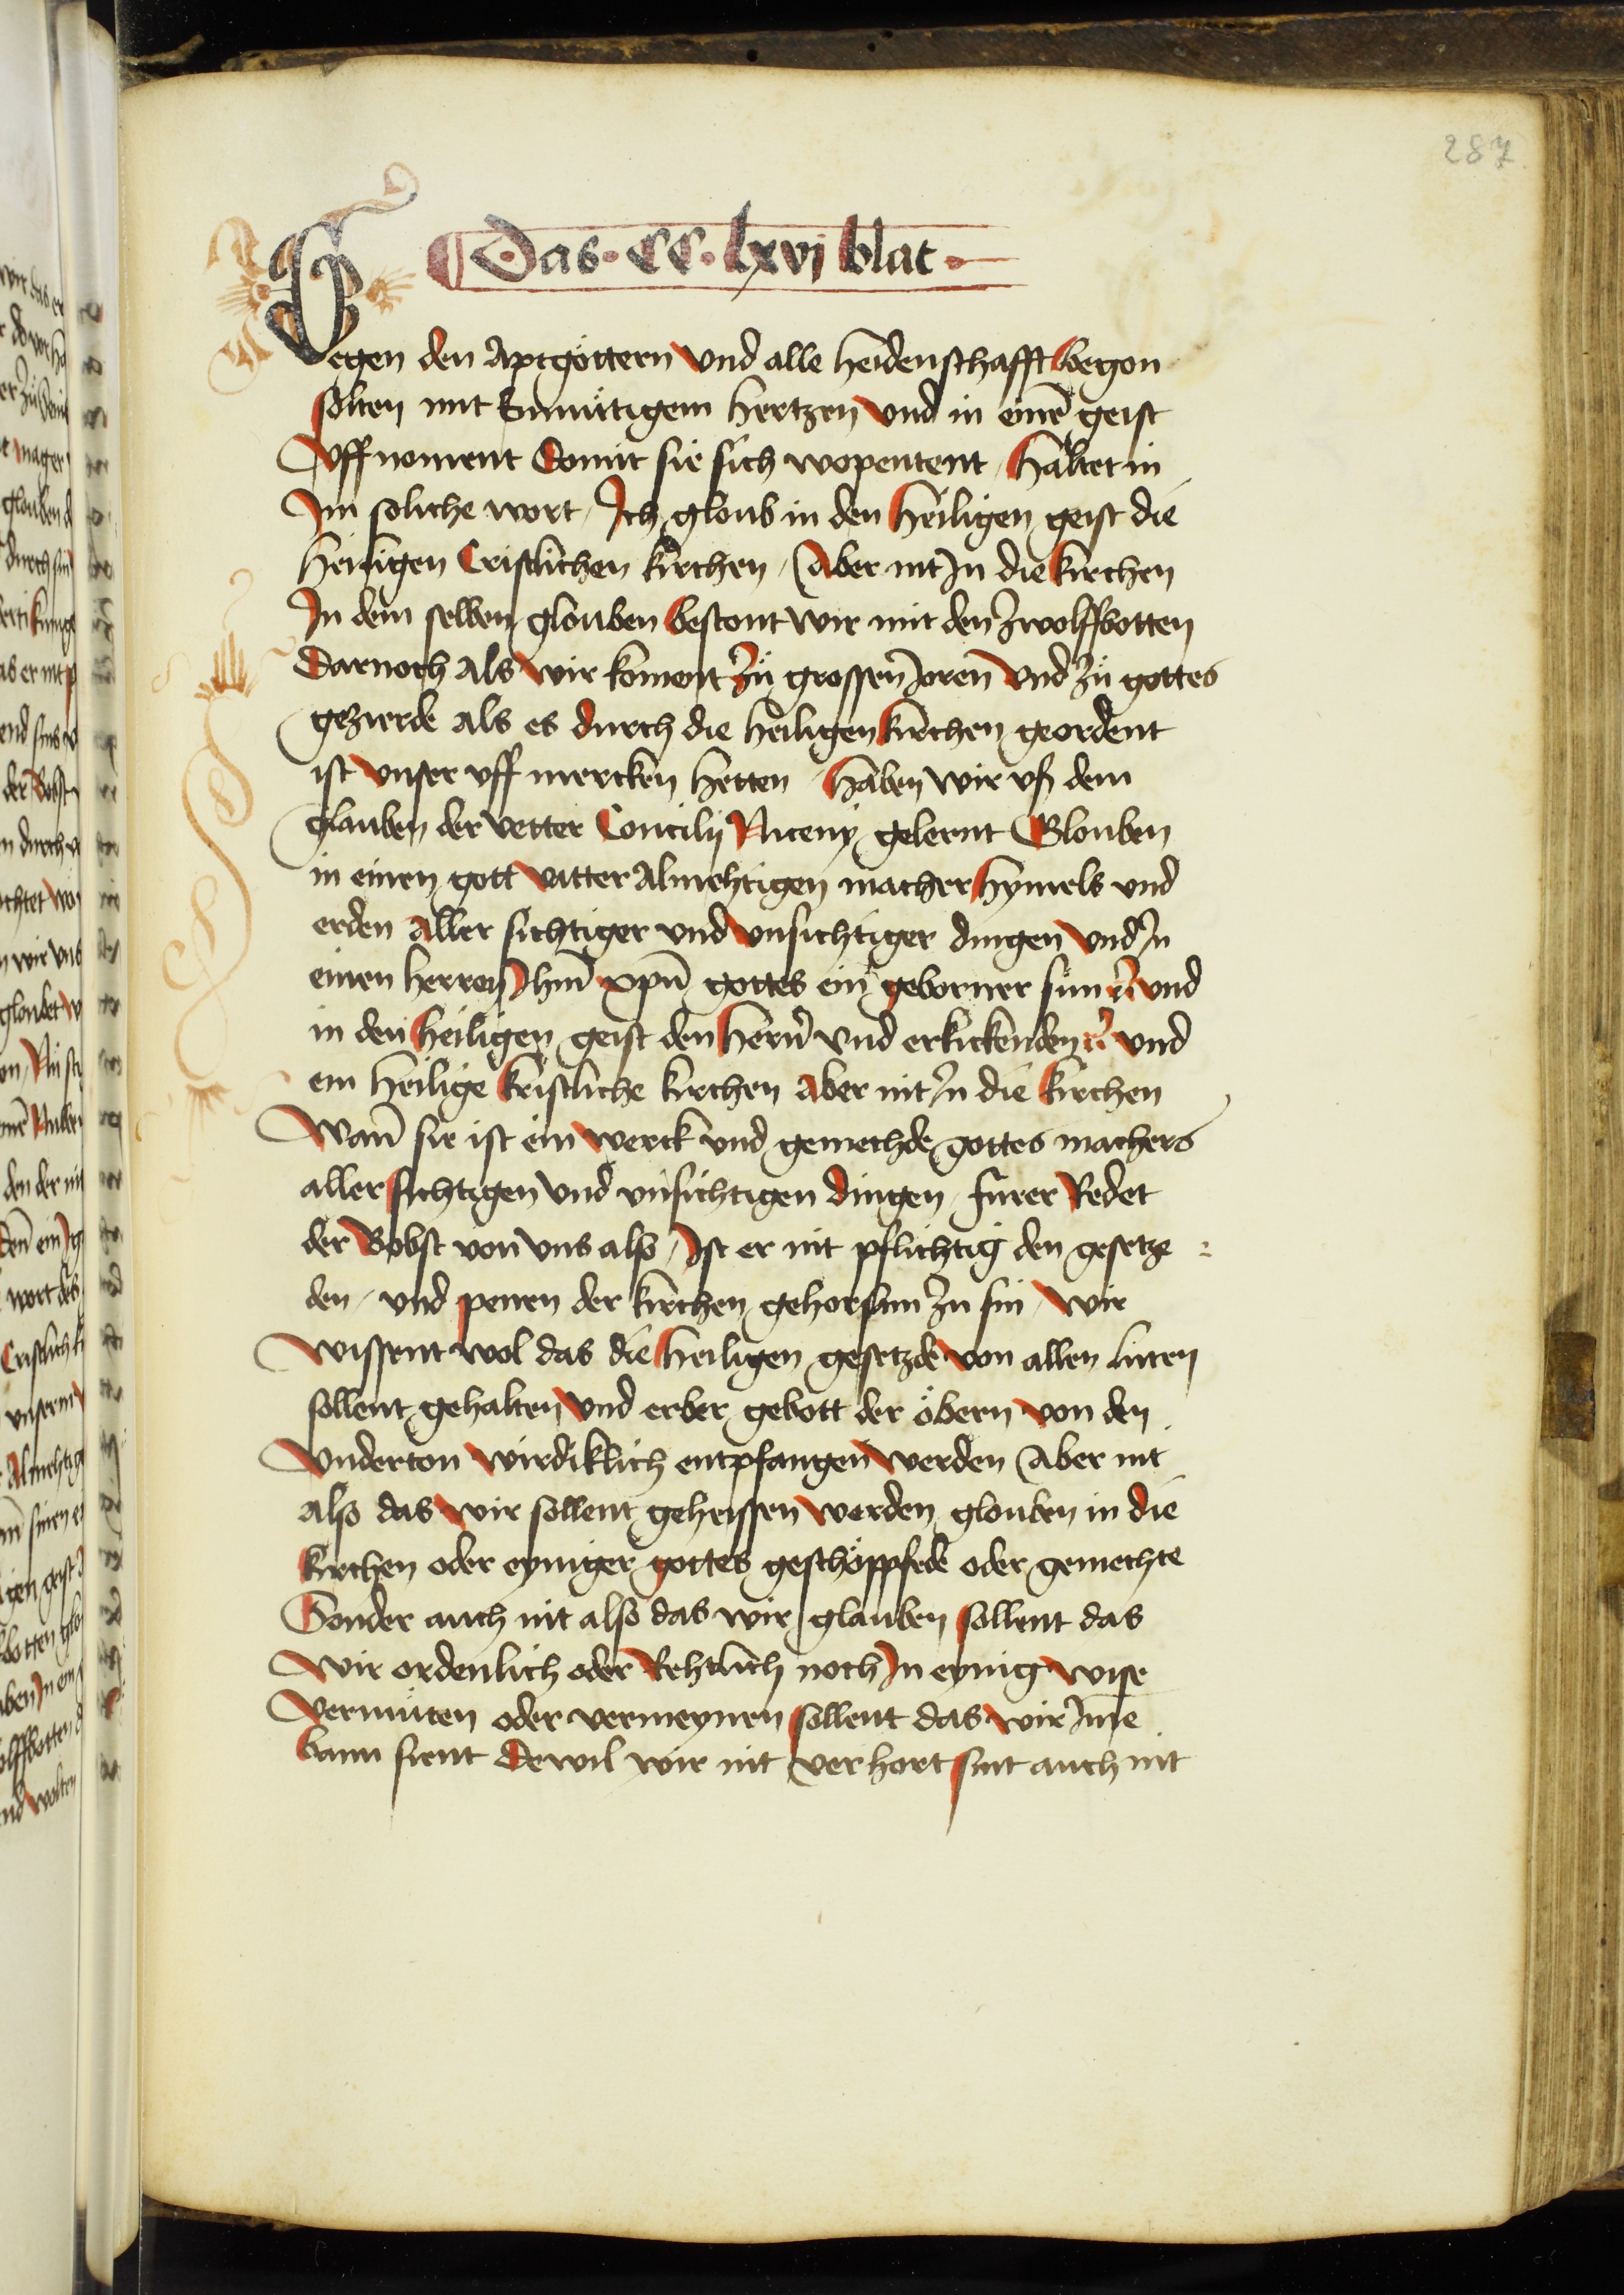 287
¶ Das · CC · lxvj blat ·
Gegen den Aptgöttern vnd alle heidenschafft began
solten mit Einmütigem hertzen vnd in einē geist
Vffnoment Domit sie sich wopentent / Haltet in
Im soliche wort / Ich gloub in den heiligen geist die
heiligen Cristlichen kirchen / Aber nit In die kirchen
In dem selben glouben bestont wir mit den zwolffbotten
Darnoch Als wir koment zů grossen Joren vnd zů gottes
gezierde als es durch die heiligen kirchen geordent
ist vnser vff mercken hetten / Haben wir vß dem
glauben der vetter Concilij Niceny gelernt Glouben
in einen gott vatter Almehtigen macher hymels vnd
erden Aller sichtiger vnd vnsichtiger dingen vnd In
einen herren Jhm̄ xpm̄ gottes ein geborner sun rc̄ vnd
in den heiligen geist den hern̄ vnd erkickenden rc̄ vnd
ein heilige kristliche kirchen Aber nit In die kirchen
Wan̄ sie ist ein werck vnd gemechde gottes machers
aller sichtigen vnd vnsichtigen dingen / furer Redet
der Bobst von vns also / Ist er nit pflichtig den gesetze
den / vnd penen der kirchen gehorsum zu sin / Wir
wissent wol das die heiligen gesetzde von allen luten
sollent gehalten vnd erber gebott der öbern von den
Vnderton wirdiklich entpfangen werden Aber nit
also das wir sollent geheissen werden glouben in die
kirchen oder eyniger gottes geschöppfede oder gemechte
Sonder auch nit also das wir glauben sollent das
wir ordenlich oder Rehtlich noch In eynig wise
vermüten oder vermeynen sollent das wir Im̄e
bann sient Dewil wir nit verhort sint auch nit